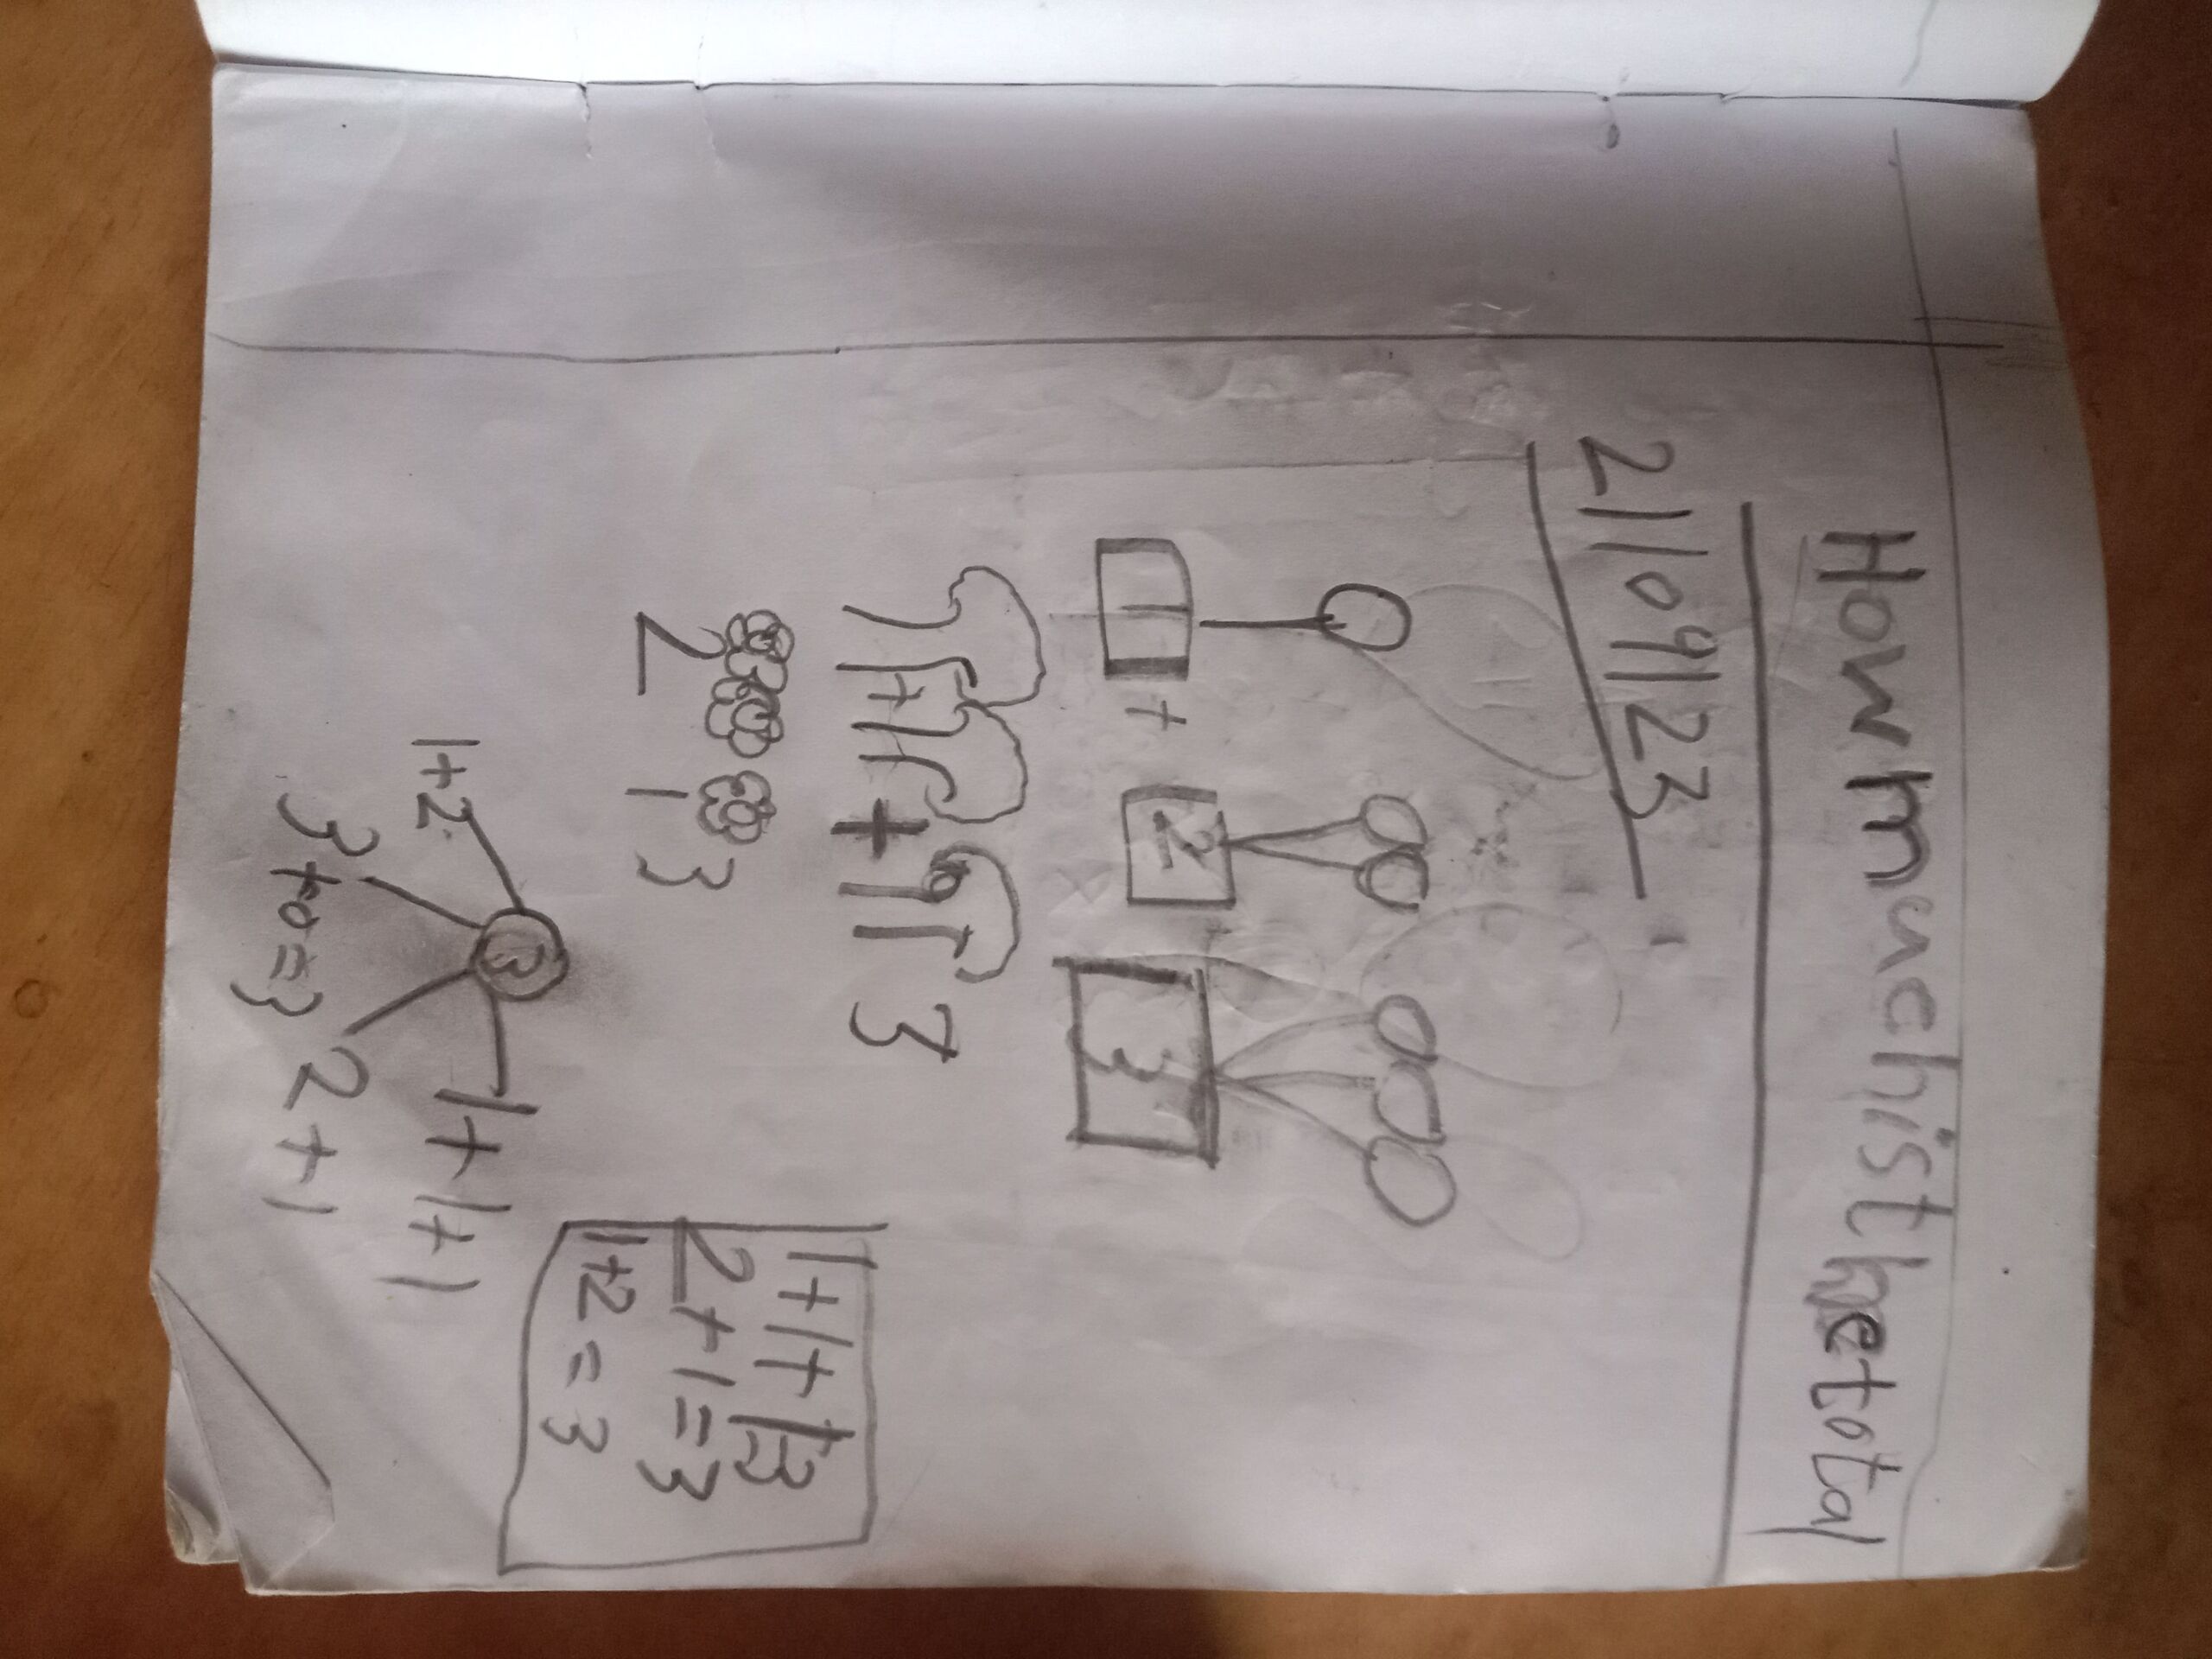 Howmuchisthetotal
21/09/23
1 + 2 3
1+1 + 1 3
2 1 3
3
1+2
3+0=3
2+1
1+1+1
1+1+13
2+1=3
1+2=3